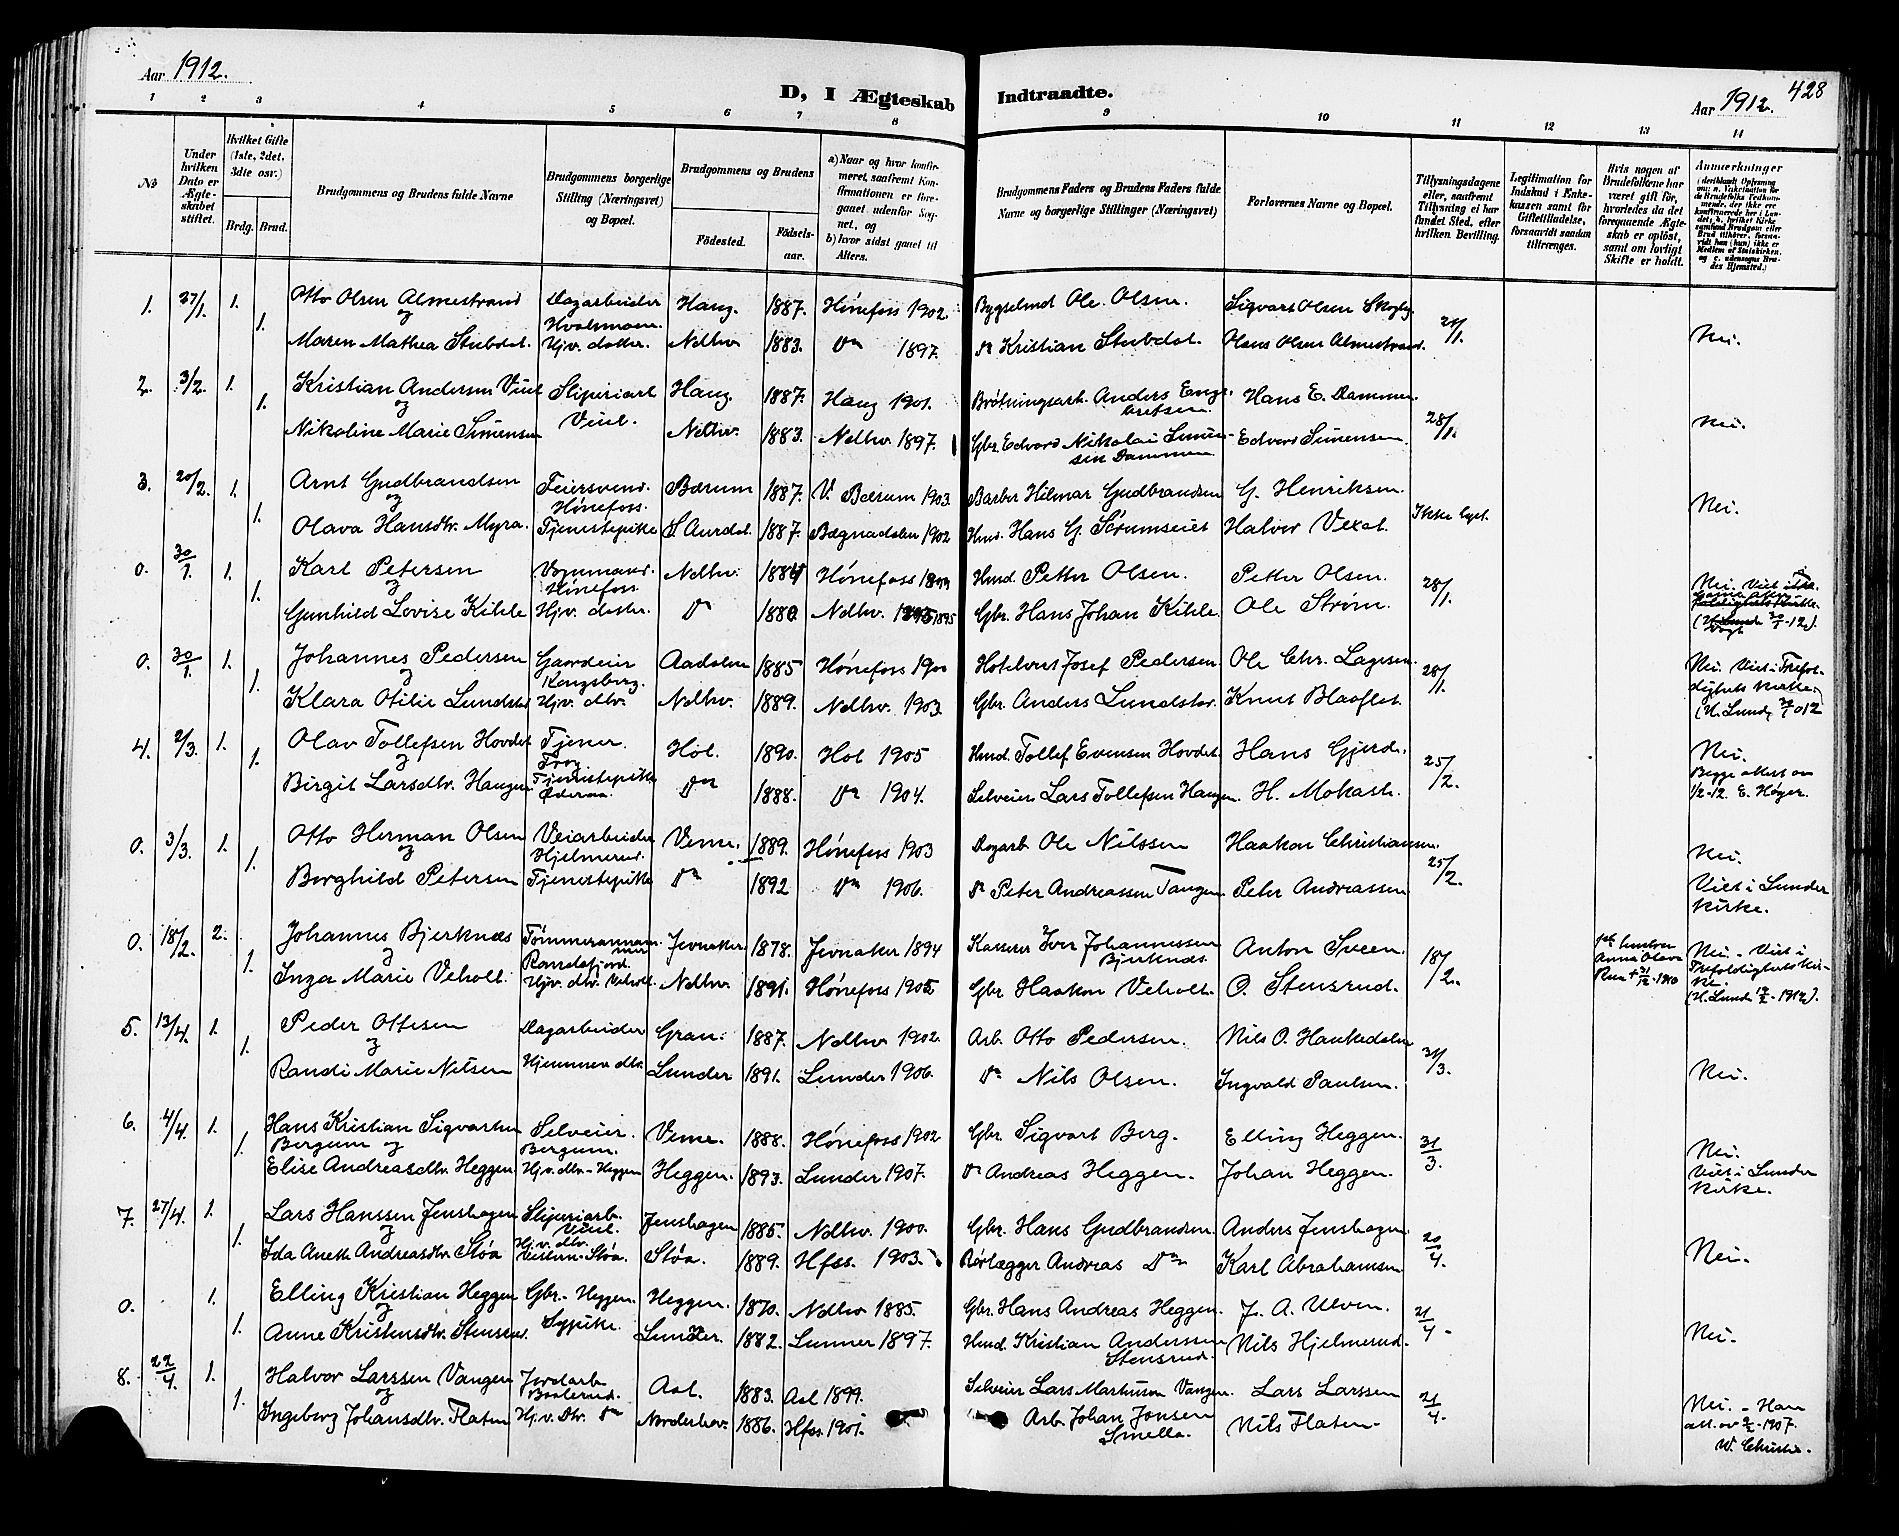 Aar 1912.
D, I Ægteskab Indtraadte.
Aar 1912. 428
1 2 3 4 5 6 7 8 9 10 11 12 13 14
No
Under hvilken Dato er Ægteskabet stiftet.
Hvilket Gifte (1ste, 2det, 3dte osv.)
Brdg. Brud.
Brudgommens og Brudens fulde Navne
Brudgommens borgerlige Stilling (Næringsvei) og Bopæl.
Brudgommens og Brudens
Fødested. Fødselsaar.
a) Naar og hvor konfirmeret, saafremt Konfirmationen er foregaaet udenfor Sognet, og
b) hvor sidst gaaet til Alters.
Brudgommens Faders og Brudens Faders fulde Navne og borgerlige Stillinger (Næringsvei)
Forlovernes Navne og Bopæl.
Tillysningsdagene eller, saafremt Tillysning ei har fundet Sted, efter hvilken Bevilling.
Legitimation for Indskud i Enkekassen samt for Giftetilladelse, forsaavidt saadan tiltrænges.
Hvis nogen af Brudefolkene har været gift før, hvorledes da det foregaaende Ægteskab er opløst, samt om lovligt Skifte er holdt.
Anmerkninger
1. 27/1. 1. Otto Olsen Almestrand Dagarbeider Haug. 1887. Hønefoss 1902. Bygselmd Ole Olsen. Sigvart Olsen Skogly. 21/1.
og Hvalsmoen.
1. Maren Mathea Stubdal. Hjv. datter. Ndhv. 1883. Do 1897. Do Kristian Stubdal. Olaus Olsen Almestrand. Nei.
2. 3/2. 1. Kristian Andersen Viul Sliperiarb. Haug. 1887. Haug 1901. Brøtningsarb. Anders Engebretsen. Hans E. Dammen. 28/1.
og Viul.
1. Nikoline Marie Simensen Ndhv. 1883. Ndhv. 1897. Gbr. Edvard Nikolai Simensen Dammen Edvard Simensen. Nei.
3. 20/2. 1. Arnt Gudbrandsen Feiersvend. Bærum 1887. V. Bærum 1903. Barber Hilmar Gudbrandsen G. Henriksen. Ikke lyst.
og Hønefoss.
1. Olava Hansdtr. Myra. Tjenestepike S. Aurdal. 1887. Bægnadalen 1902 Hans G. Sørumseiet Halvor Nei.
0. 30/1. 1. Karl Petersen Ndhv. Hønefoss Hmd. Petter Olsen. Petter Olsen. 28/1.
og Hønefoss.
1. Gunhild Lovise Kihle Hjv. datter. Do 1880 Ndhv. 1895 Gbr. Hans Johan Kihle. Ole Strøm. Nei. Viet i
0. 30/1. 1. Johannes Pedersen Gaardeier Aadalen 1885 Hønefoss 1900 Hotelvert Josef Pedersen. Ole Chr. Lagesen. 28/1.
og Kongsberg.
1. Klara Otilie Lundstad Hjv. dtr. Ndhv. 1889. Ndhv. 1903. Gbr. Anders Lundstad. Knut Blaaflat. Nei. Viet i Trefoldighets kirke. (H. Lund,
4. 2/3. 1. Olav Tollefsen Hovdet Tjener. Hol. 1890. Hol 1905 Hmd. Tollef Evensen Hovdet. Hans Gjerde. 25/2.
og Tjenestepike
1. Birgit Larsdtr. Haugen Do 1888. Do 1904. Selveier Lars Tollefsen Haugen. H. Nei. Begge attest av 1/2-12. E. Høyer.
0. 3/3. 1. Otto Herman Olsen Veiarbeider Veme. 1889. Hønefoss 1903 Dagarb. Ole Nilssen Haakon Christiansen. 25/2.
og Hjelmerud.
1. Borghild Petersen Tjenestepike Do 1892 Do 1906. Do Peter Andreassen Tangen Peter Andreassen Nei. Viet i Lunder kirke.
0. 18/2. 2. Johannes Bjerknæs Jevnaker. 1878. Jevnaker 1894 Kasserer Iver Johannessen Bjerknæs. Anton Sveen 18/2.
og Randsfjord.
1. Inga Marie Veholt. Hjv. dtr. Veholt. Ndhv. 1891. Hønefoss 1905 Gbr. Haakon Veholt. O. Stensrud. Anna Olava 1910 Nei. - Viet i Trefoldighetskirke. (H. Lund 1912).
5. 13/4. 1. Peder Ottesen Dagarbeider Gran. 1887. Ndhv. 1902. Arb. Otto Pedersen. Nils O. Haukedalen 31/3.
og
1. Randi Marie Nilsen Hjemmev. dtr. Lunder 1891. Lunder 1906. Do Nils Olsen. Ingvald Paulsen. Nei.
6. 4/4. 1. Hans Kristian Sigvartsen Selveier. Veme. 1888. Hønefoss 1902 Gbr. Sigvart Berg. Elling Heggen. 31/3.
Bergum og Bergum.
1. Elise Andreasdtr. Heggen Hjv. dtr. - Heggen Heggen. 1893. Lunder 1907. Do Andreas Heggen. Johan Heggen. Nei. Viet i Lunder kirke.
7. 27/4. 1. Lars Hanssen Jenshagen Sliperiarb. Jenshagen 1885. Ndhv. 1900. Gbr. Hans Gudbrandsen Anders Jenshagen 20/4.
og Viul.
1. Ida Aneth Andreasdtr. Støa Hjv. dtr. Støa. Støa. 1889. Hfss. 1903. Rørlægger Andreas Do Karl Abrahamsen Nei.
0. 1. Elling Kristian Heggen Gbr. - Heggen. Heggen. 1870. Ndhv 1885. Gbr. Hans Andreas Heggen. J. A. Ulven. 21/4.
og
1. Anne Kristensdtr. Stensrud Sypike. Lunder. 1882. Lunner 1897. Hmd. Kristian Anderssen Stensrud. Nils Hjelmerud. Nei.
8. 22/4. 1. Halvor Larssen Vangen Jordarb. Aal. 1883. Aal 1899. Selveier Lars Vangen. Lars Larssen 21/4.
og
1. Ingeborg Johansdtr. Flaten Hjv. Dtr. Do Norderhov. 1886. Hfss. 1901. Arb. Johan Jonsen Smella. Nils Flaten. Nei. - Han att. av 1907. W. Christie.